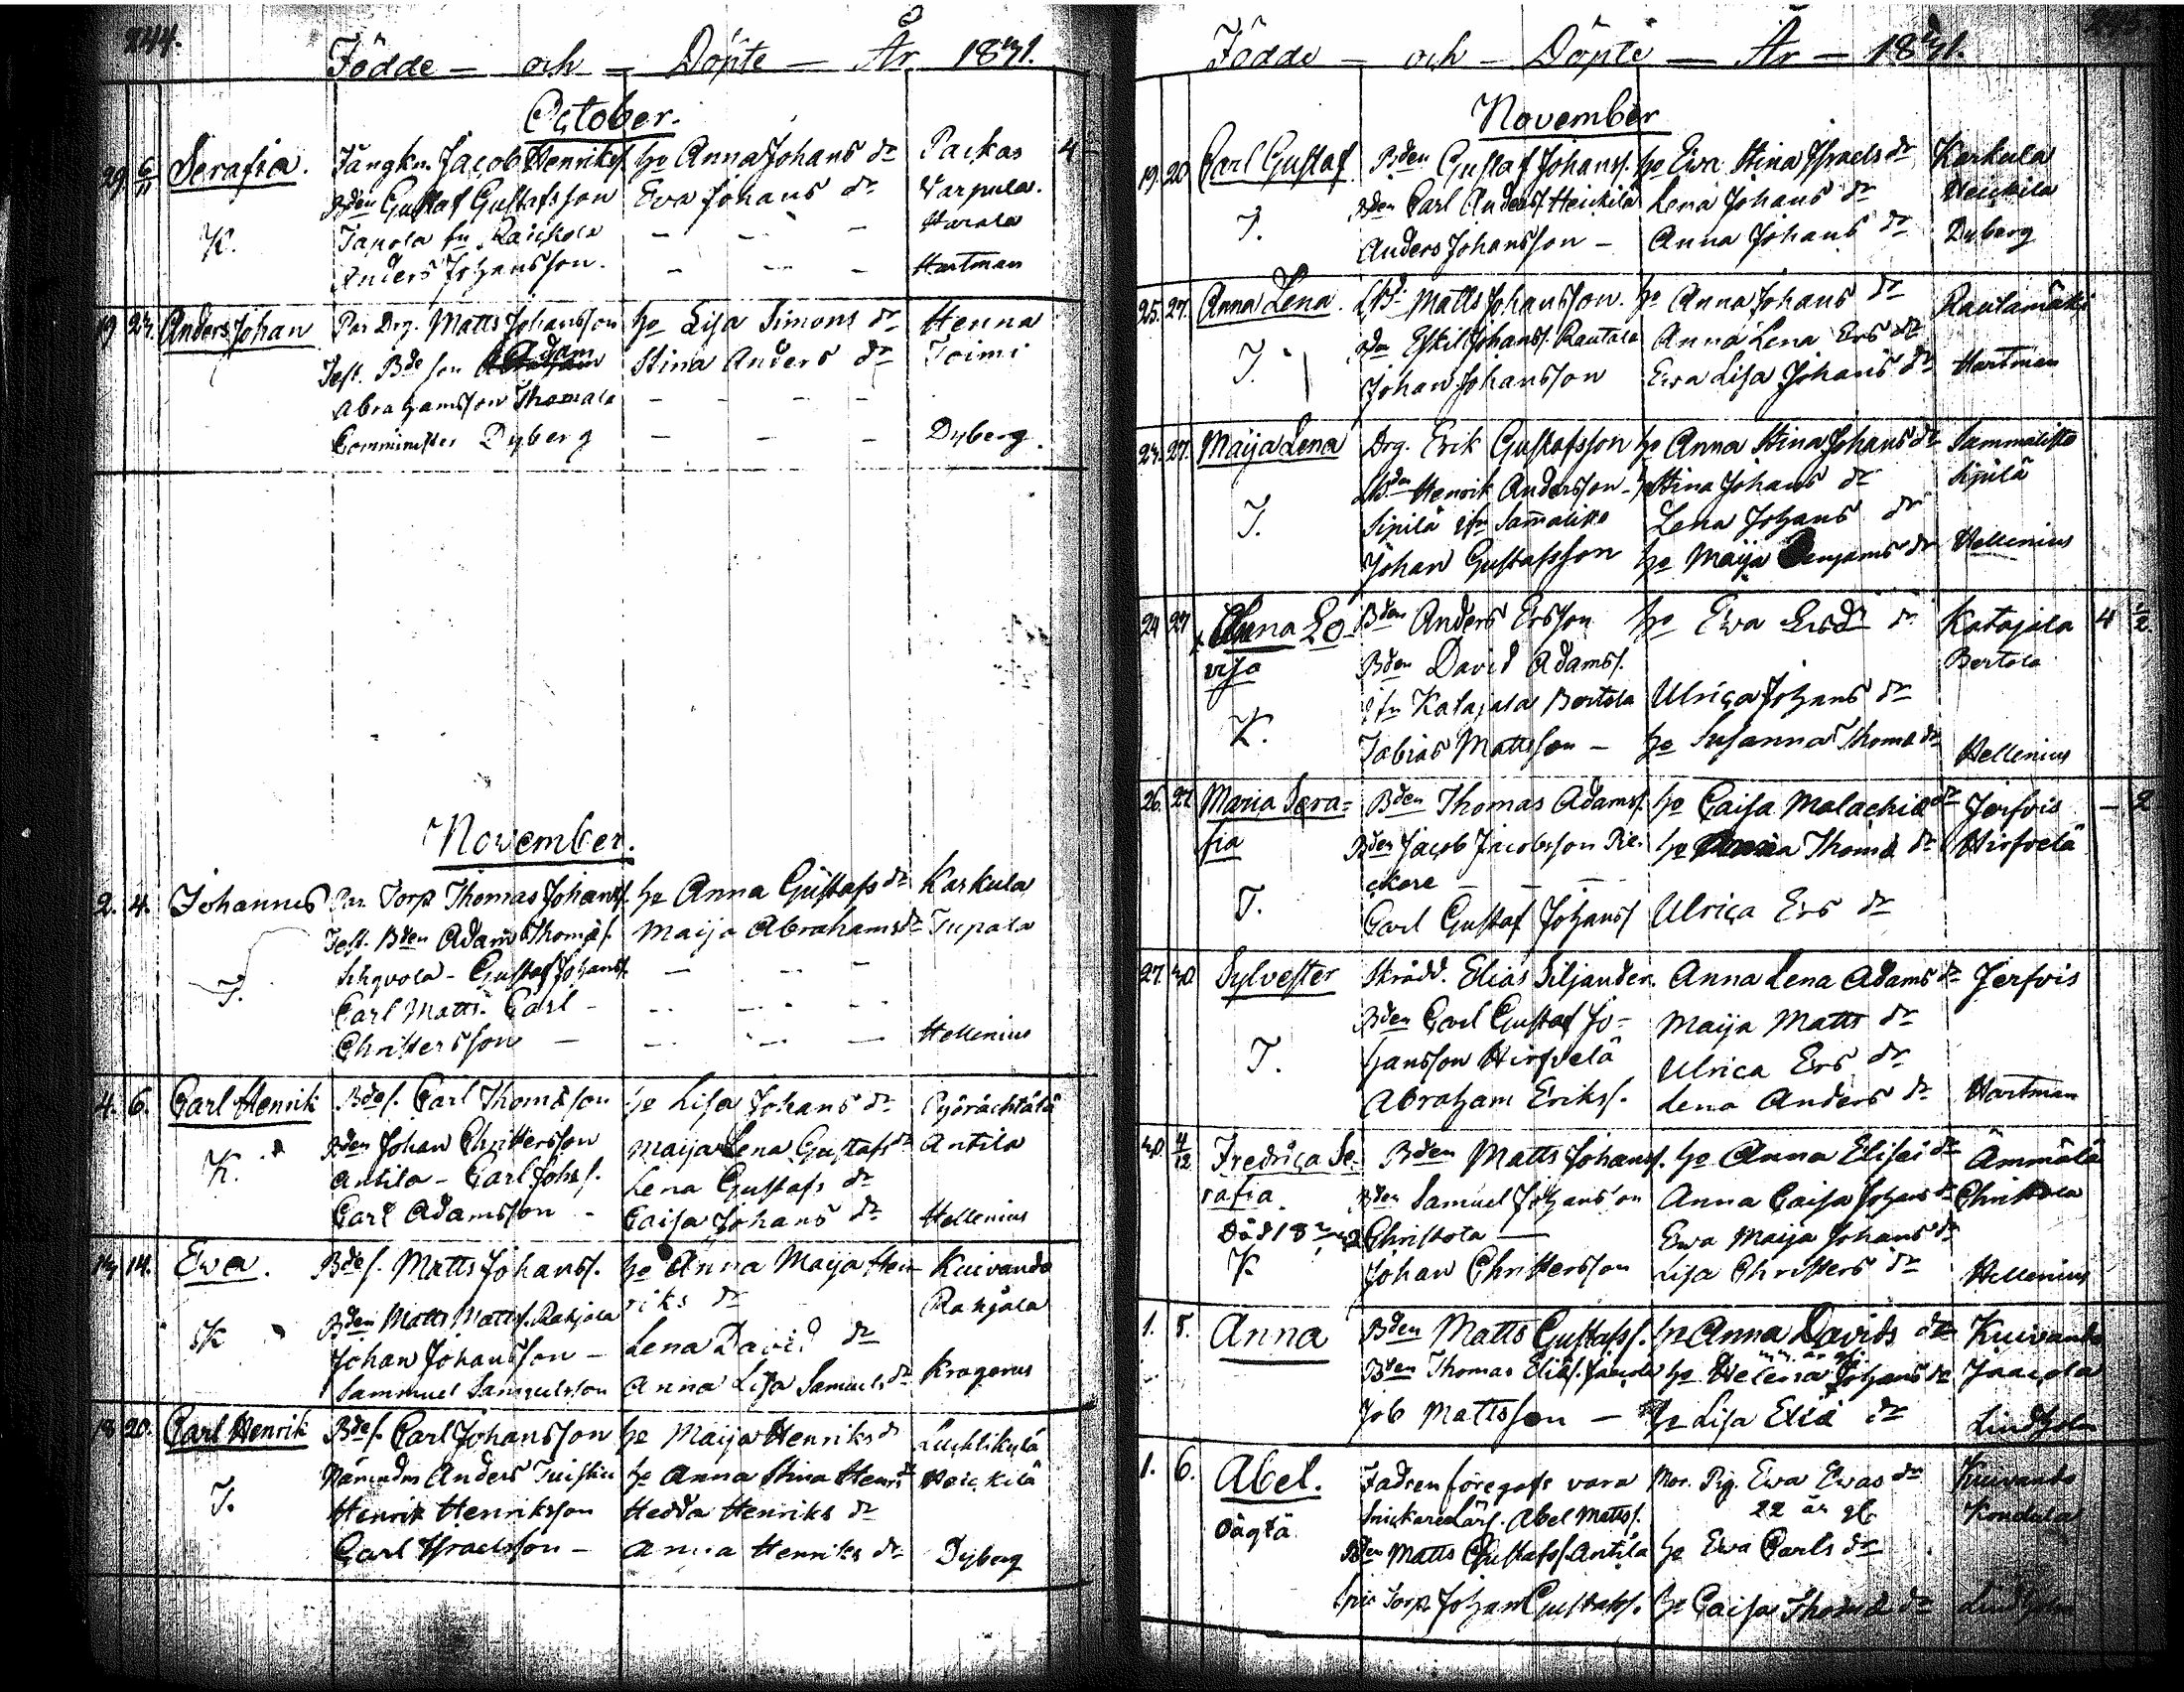 244.
Födde — och — Döpte — År 1831.
October.
29 6/11 Serafia. Jängkn. Jacob Henriks. ho Anna Johans dr Packas 4
Bden Gustaf Gustafsson Eva Johans dr Varpula.
K. Tapola fn Raickola — — — Harala
Anders Johansson. — — — Hartman
19 23. Anders Johan Par Drg. Matts Johansson ho Lisa Simons dr Henna
Test. Bde son Adam Stina Anders dr Toimi
Abrahamsson Thomala — — — —
Comminister Dyberg — — — Dyberg.
November.
2. 4. Johannes Par. Torp Thomas Johanss. ho Anna Gustafs dr Karkula
Test. Bden Adam Thomas. Maija Abrahams dr Tupala
J. Gustaf Johanss. — — —
Carl Matts. Carl — — — —
Christersson — — — — Hellenius
4. 6. Carl Henrik Bdes. Carl Thomasson ho Lisa Johans dr
Bden Johan Christersson Maija Lena Gustafs dr Antila
K. Antila — Carl Johs. Lena Gustafs dr
Carl Adamsson — Caisa Johans dr Hellenius
13 14. Ewa. Bdes. Matts Johanss. ho Anna Maija Hen- Kuivando
Bden Matts Matts. Rahjala riks dr Rahjala
K Johan Johansson — Lena David dr
Sammuel Samuelsson Anna Lisa Samuels dr Krogerus
18 20. Carl Henrik Bdes. Carl Johansson ho Maija Henriks dr Luchtikylä
Nämndm Anders Tuisku ho Anna Stina Henr dr Heickilä
J. Henrik Henriksson Hedda Henriks dr
Carl Israelsson — Anna Henriks dr Dyberg
Födde — och — Döpte — År — 1831.
November
19. 20 Carl Gustaf Bden Gustaf Johanss. ho Ewa Stina Israels dr Karkula
Bden Carl Anders. Heickilä Lena Johans dr Heickilä
J. Anders Johansson — Anna Johans dr Dyberg
25. 27. Anna Lena. LBd Matts Johansson. ho Anna Johans dr Rautamäki
Bden Eskil Johans. Rautala Anna Lena Ers dr
J. Johan Johansson Ewa Lisa Johans dr Hartman
23. 27. Maija Lena Drg. Erik Gustafsson ho Anna Stina Johans dr Sammalisto
LBden Henrik Andersson — ho Stina Johans dr Sipilä
J. Sipilä ifn Samalisto Lena Johans dr
Johan Gustafsson ho Maija Benjams dr Hellenius
24 27 x Anna Lo- Bden Anders Ersson ho Ewa Ers dr Katajala 4 1/2.
visa Bden David Adams. Bertola
ifn Katajala Bertola Ulrica Johans dr
K. Tobias Mattsson — ho Susanna Thoma dr Hellenius
26. 27. Maria Sera- Bden Thomas Adams. ho Caisa Malachia dr Jerfvis — 2
fia Bden Jacob Jacobsson Pie- ho Thoma dr Hirfvelä
ckare — — —
J. Carl Gustaf Johanss Ulrica Ers dr
27. 30. Sylvester Skrädd. Elias Siljander. Anna Lena Adams dr Jerfvis
Bden Carl Gustaf Jo- Maija Matts dr
J. hansson Hirfvelä Ulrica Ers dr
Abraham Eriks. Lena Anders dr Hartman
30. 4/12 Fredrica Se- Bden Matts Johanss. ho Anna Elisei dr Ämmälä
rafia. Bden Samuel Johansson Anna Caisa Johans dr Christola
Död 18 Christola — Ewa Maija Johans dr
K Johan Christersson Lisa Christers dr Hellenius
1. 5. Anna Bden Matts Gustafs. ho Anna Davids dr Kuivando
Bden Thomas Elias. Jaacola ho Helena Johans dr Jaacola
Job Mattsson — ho Lisa Elia dr Lindholm
1. 6. Abel. Fadren föregafs vara Mor. Pig. Ewa Ewas dr Kuivando
Snickare Lärl. Abel Matts. 22 år gl. Kondula
Oägta Bden Matts Gustafs. Antila ho Ewa Carls dr
Torp. Johan Gustafs. ho Caisa Thoma dr Lindholm